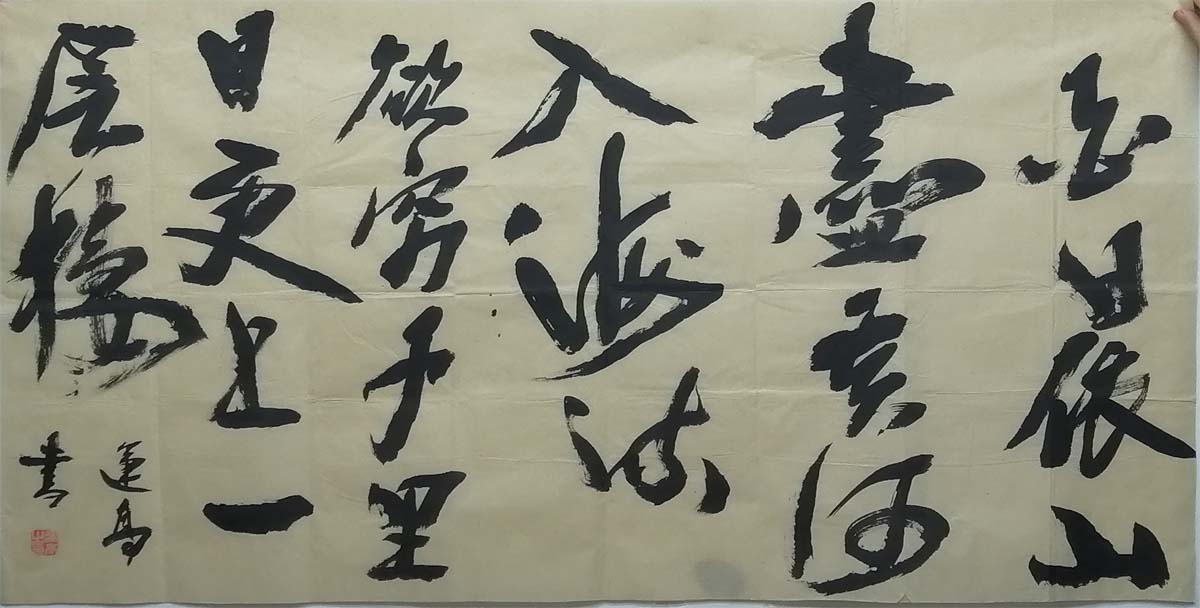 白日依山
盡黄河
入海流
欲窮千里
目更上一
层楼
运高
书